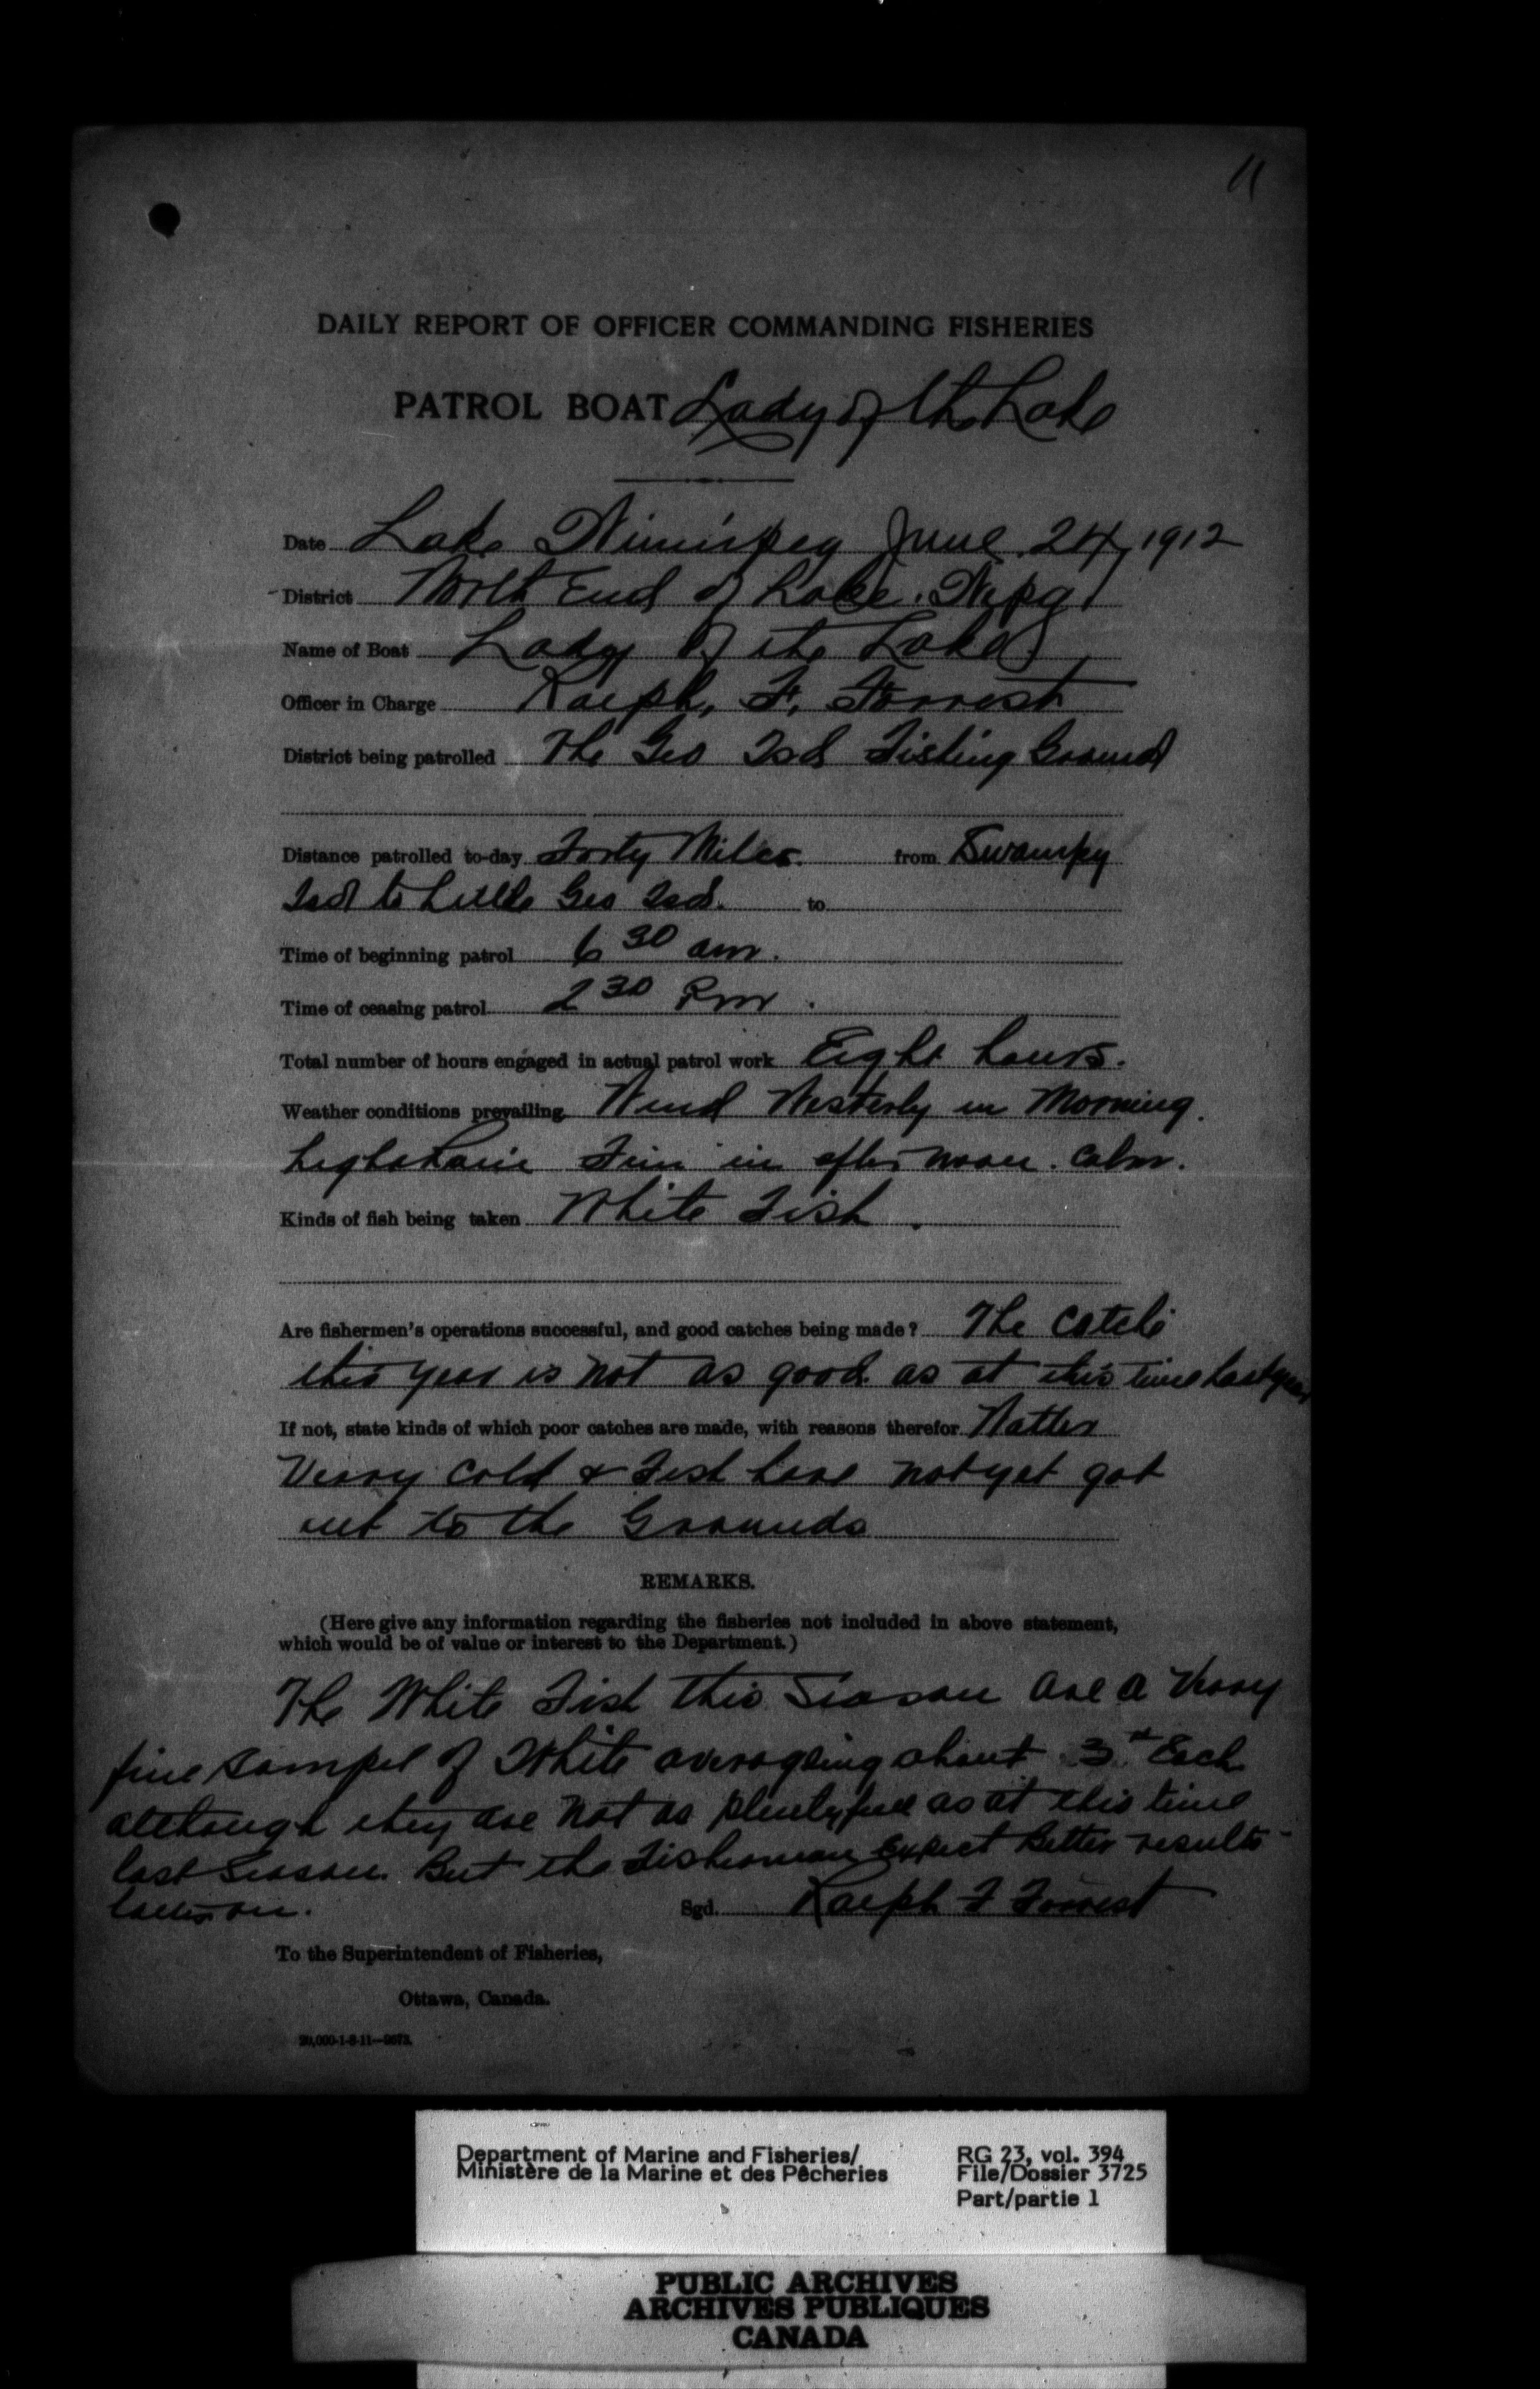 11
DAILY REPORT OF OFFICER COMMANDING FISHERIES
PATROL BOAT Lady of the Lake
Date Lake Winnipeg June 24, 1912
District North End of Lake. Wpg
Name of Boat Lady of the Lake
Officer in Charge Ralph. F. Forrest
District being patrolled The Geo Isd Fishing Ground
Distance patrolled to-day Forty Miles. from Swampy
Isd to Little Geo Isd. to
Time of beginning patrol 6 30 am.
Time of ceasing patrol 2 30 Pm.
Total number of hours engaged in actual patrol work Eight hours.
Weather conditions prevailing Wind Westerly in Morning.
in after noon. Calm.
Kinds of fish being taken White Fish.
Are fishermen's operations successful, and good catches being made? The Catch
this year is not as good as at this time last year
If not, state kinds of which poor catches are made, with reasons therefor Watter
Verry Cold & Fish have not yet got
out to the Grounds
REMARKS.
(Here give any information regarding the fisheries not included in above statement,
which would be of value or interest to the Department.)
The White Fish this Season are a Verry
fine sampel of White averageing about 3 # Each
although they are not as plentyfull as at this time
last Season. But the Fisherman Expect Better results
Sgd. Ralph F Forrest
To the Superintendent of Fisheries,
Ottawa, Canada.
20,000-1-8-11—9073.
Department of Marine and Fisheries/ RG 23, vol. 394
Ministère de la Marine et des Pêcheries File/Dossier 3725
Part/partie 1
PUBLIC ARCHIVES
ARCHIVES PUBLIQUES
CANADA